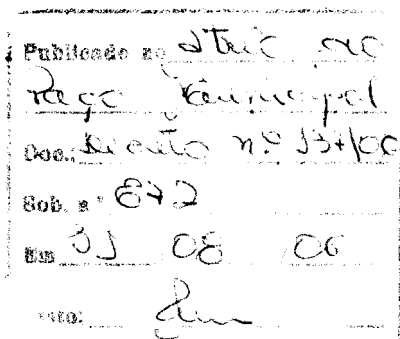 Publicado no átrio do
Paço Municipal
Doc.: Decreto nº 137/06
Sob. nº 872
Em 31 08 06